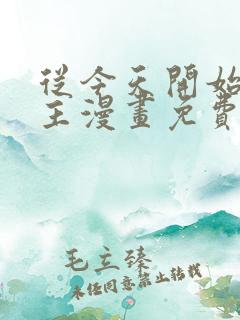 從今天開始
王漫畫免費
毛主臻
未經同意禁止轉載